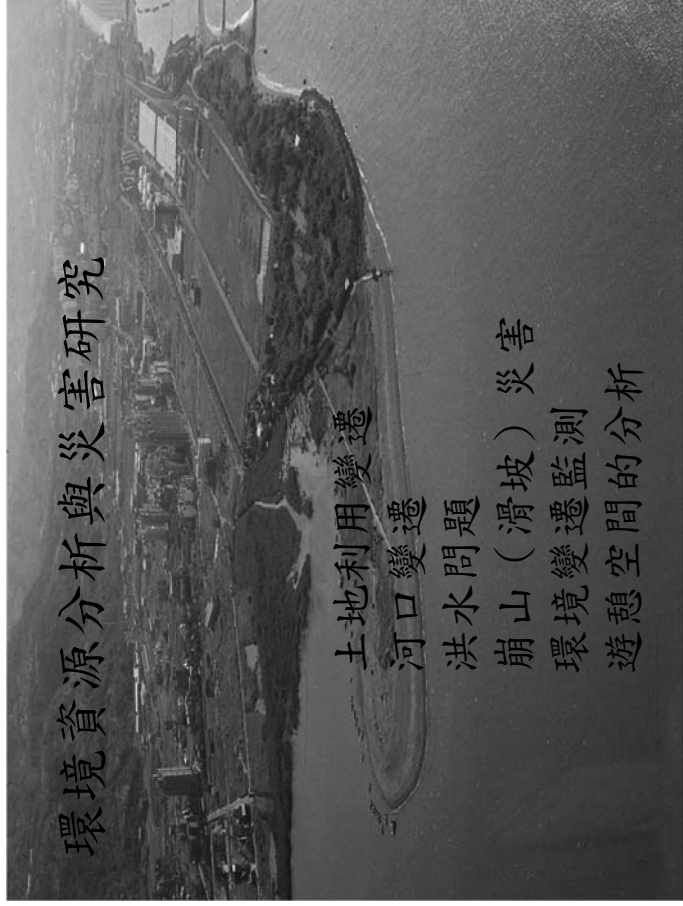 環境資源分析與災害研究
土地利用變遷
河口變遷
洪水問題
崩山（滑坡）災害
環境變遷監測
遊憩空間的分析